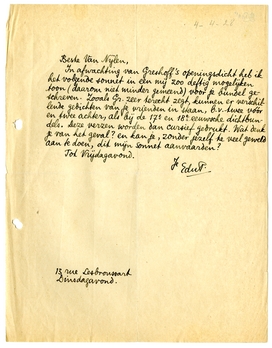 4-4-28
Beste Van Nijlen,
In afwachting van Greshoff's openingsdicht heb ik
het volgende sonnet in een my zoo deftig mogelyken
toon (daarom niet minder gemeend) voor je bundel ge-
schreven. Zooals Gr. zeer terecht zegt, kunnen er verschil-
lende gedichten van je vrienden in staan, b.v. twee vóór
en twee achter, als by de 17e en 18e eeuwsche dichtbun-
dels. Deze verzen worden dan cursief gedrukt. Wat denk
je van het geval? en kan je, zonder jezelf te veel geweld
aan te doen, dit myn sonnet aanvaarden?
Tot Vrydagavond.
Je
EduP.
13 rue Lesbroussart
Dinsdagavond.